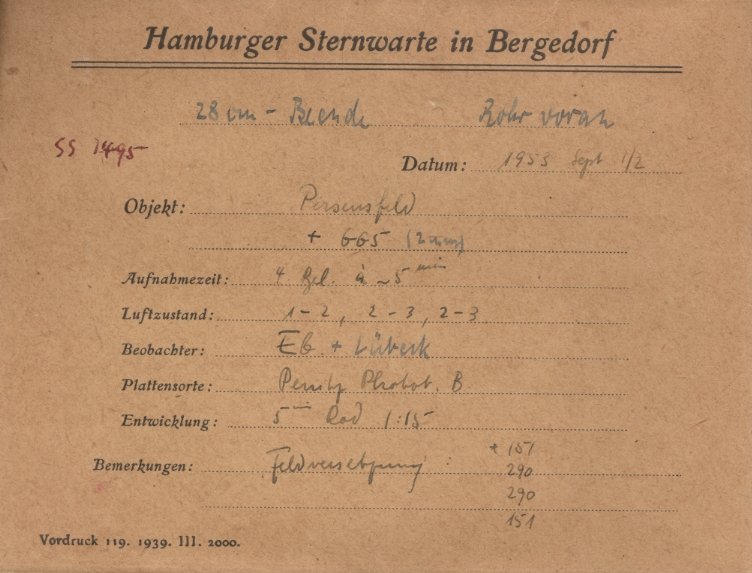 Hamburger Sternwarte in Bergedorf
28 cm - Blende Rohr voran
SS 1495
Datum: 1953 Sept 1/2
Objekt: Perseusfeld
+ 665
Aufnahmezeit: 4 Bel. à ~ 5 min
Luftzustand: 1-2, 2-3, 2-3
Beobachter: + Lübeck
Plattensorte: Perutz Phobot. B
Entwicklung: 5 min Rod 1:15
Bemerkungen: Feldversetzung: + 151
290
290
151
Vordruck 119. 1939. III. 2000.